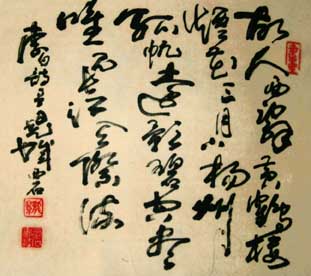 故人西辭黃鶴樓
煙花三月下揚州
孤帆遠影碧空盡
唯見長江天際流
李白詩